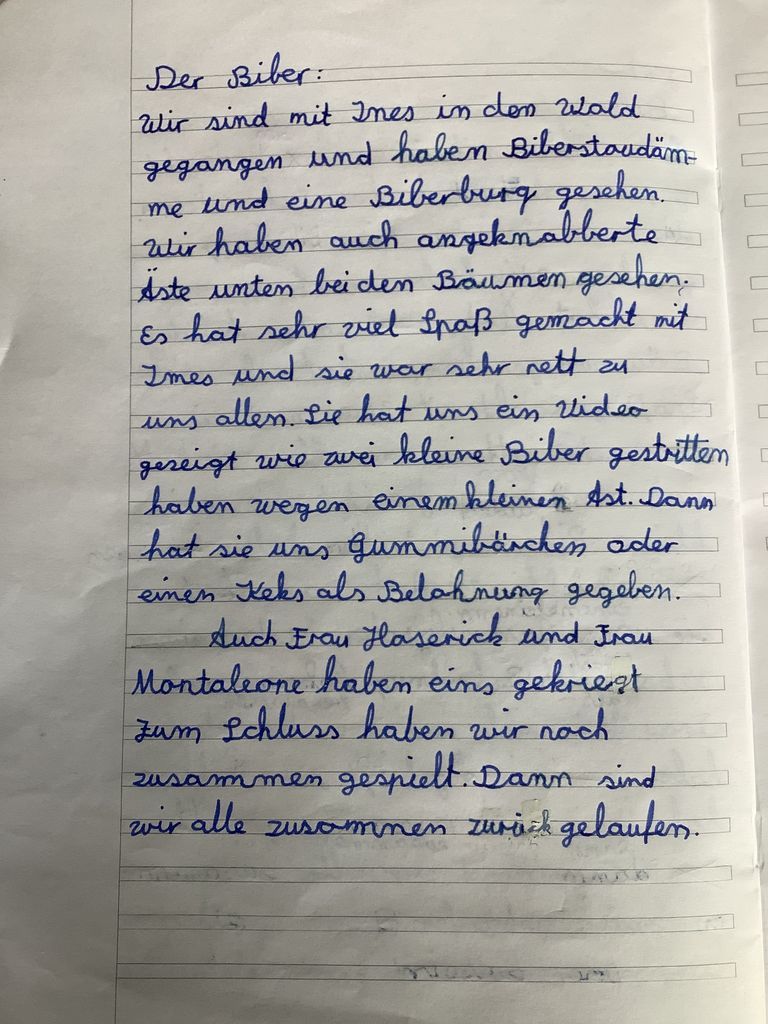 Der Biber:
Wir sind mit Ines in den Wald
gegangen und haben Biberstaudäm-
me und eine Biberburg gesehen.
Wir haben auch angeknabberte
Äste unten bei den Bäumen gesehen.
Es hat sehr viel Spaß gemacht mit
Ines und sie war sehr nett zu
uns allen. Sie hat uns ein Video
gezeigt wie zwei kleine Biber gestritten
haben wegen einem kleinen Ast. Dann
hat sie uns Gummibärchen oder
einen Keks als Belohnung gegeben.
Auch Frau Haserick und Frau
Montaleone haben eins gekriegt
Zum Schluss haben wir noch
zusammen gespielt. Dann sind
wir alle zusammen zurück gelaufen.